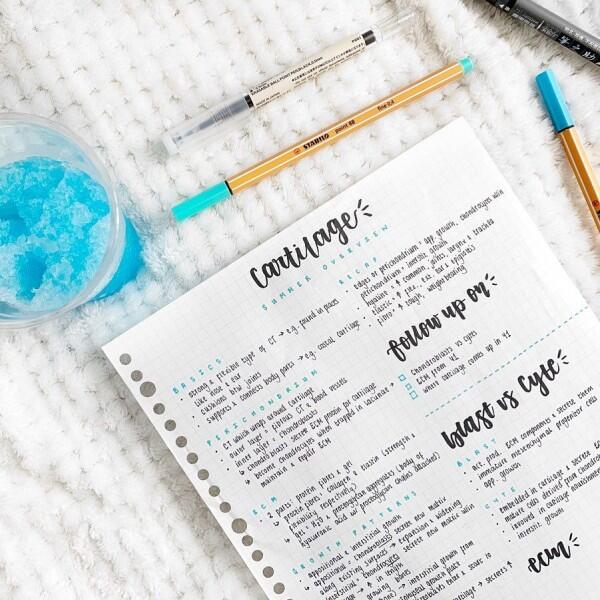 STABILO point 88 fine 0,4
Cartilage
SUMMER OVERVIEW
BASICS
strong & flexible type of CT → e.g. found in places
like nose & ear
cushions btw joints
supports & connects body parts → e.g. costal cartilage
PERICHONDRIUM
CT which wraps around cartilage
outer layer: fibrous CT & blood vessels
inner layer: chondroblasts
↳ chondroblasts secrete ECM protein for cartilage
↳ become chondrocytes when trapped in lacunae →
maintain & repair ECM
ECM
2 parts: protein fibres & gel
↳ protein fibres: collagen & elastin (strength &
flexibility, respectively)
↳ gel: H₂O & proteoglycan aggregates (body of
hyaluronic acid w/ proteoglycan chains attached)
GROWTH PATTERNS
appositional & interstitial growth
appositional: chondroblasts secrete new matrix
along existing surfaces → expansion & widening
interstitial: chondrocytes secrete new matrix within
cartilage → ↑ in length
RECAP
edges of perichondrium: app. growth, chondrocytes w/in
perichondrium: interstit. growth
hyaline: ↑ common, joints, larynx & trachea
elastic: ↑ flex., ext. ear & epiglottis
fibro: ↑ tough, weightbearing
follow up on
chondroblasts vs cytes
ECM from
what cartilage comes up in
blast vs cyte
BLAST
act. prod. ECM components & secrete them
immature mesenchymal progenitor cells
app. growth
CYTE
embedded in cartilage &
mature cells derived from
involved in cartilage
interstit. growth
ecm